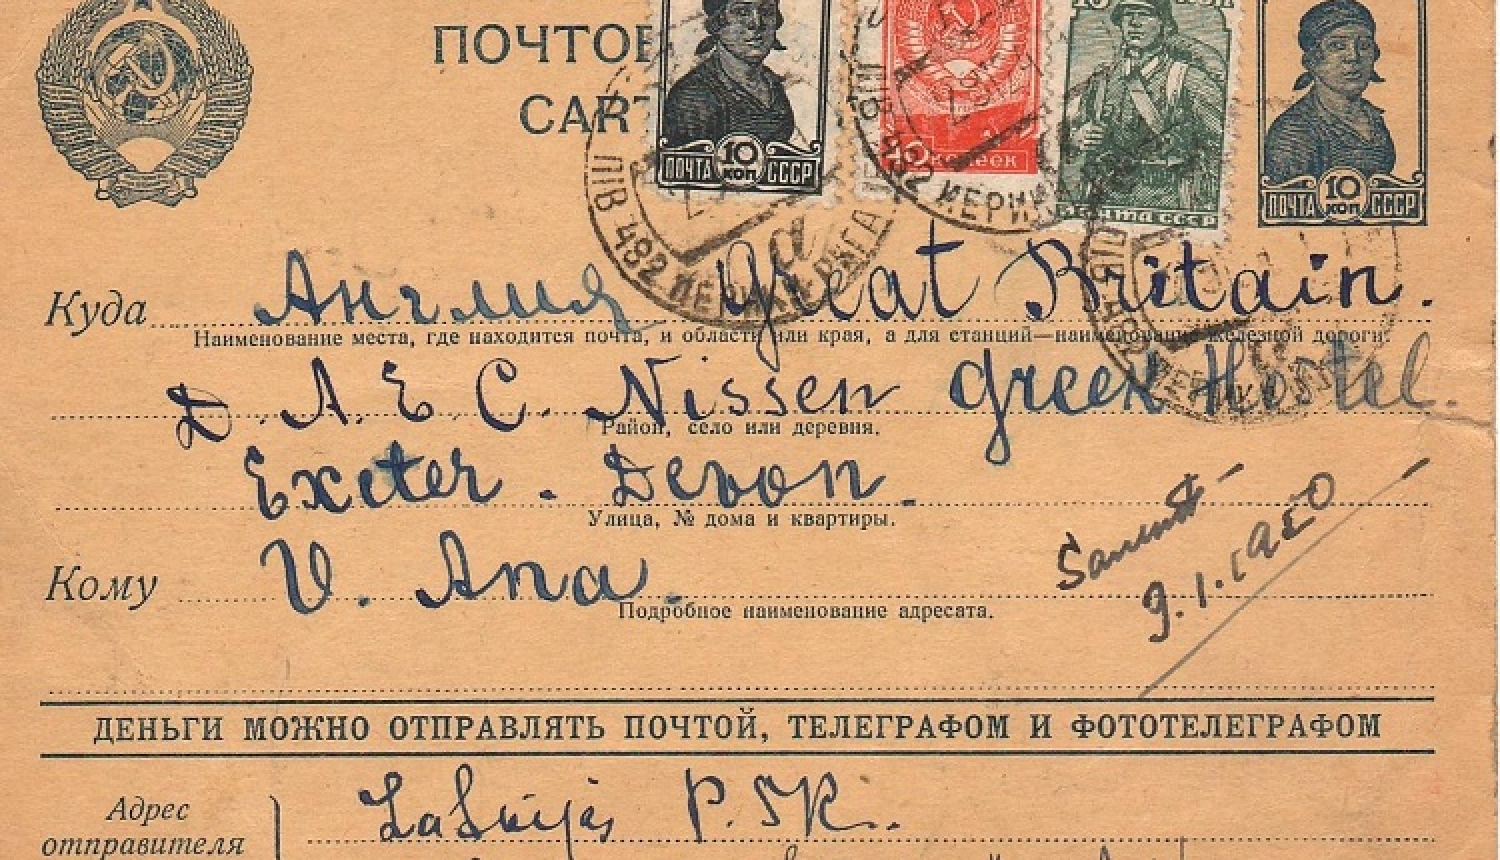 ПОЧТОВ
CART
ПОЧТА 10 КОП СССР
10 копеек
ПОЧТА СССР
ПОЧТА 10 КОП СССР
Куда Англия Great Britain.
Наименование места, где находится почта, и области или края, а для станций—наименование железной дороги.
D. A. E. C. Nissen Greek Hostel.
Район, село или деревня.
Exeter. Devon.
Улица, № дома и квартиры.
Кому V. Ana.
Подробное наименование адресата.
9.1.1950
ДЕНЬГИ МОЖНО ОТПРАВЛЯТЬ ПОЧТОЙ, ТЕЛЕГРАФОМ И ФОТОТЕЛЕГРАФОМ
Адрес
отправителя
Latvijas P.SR.